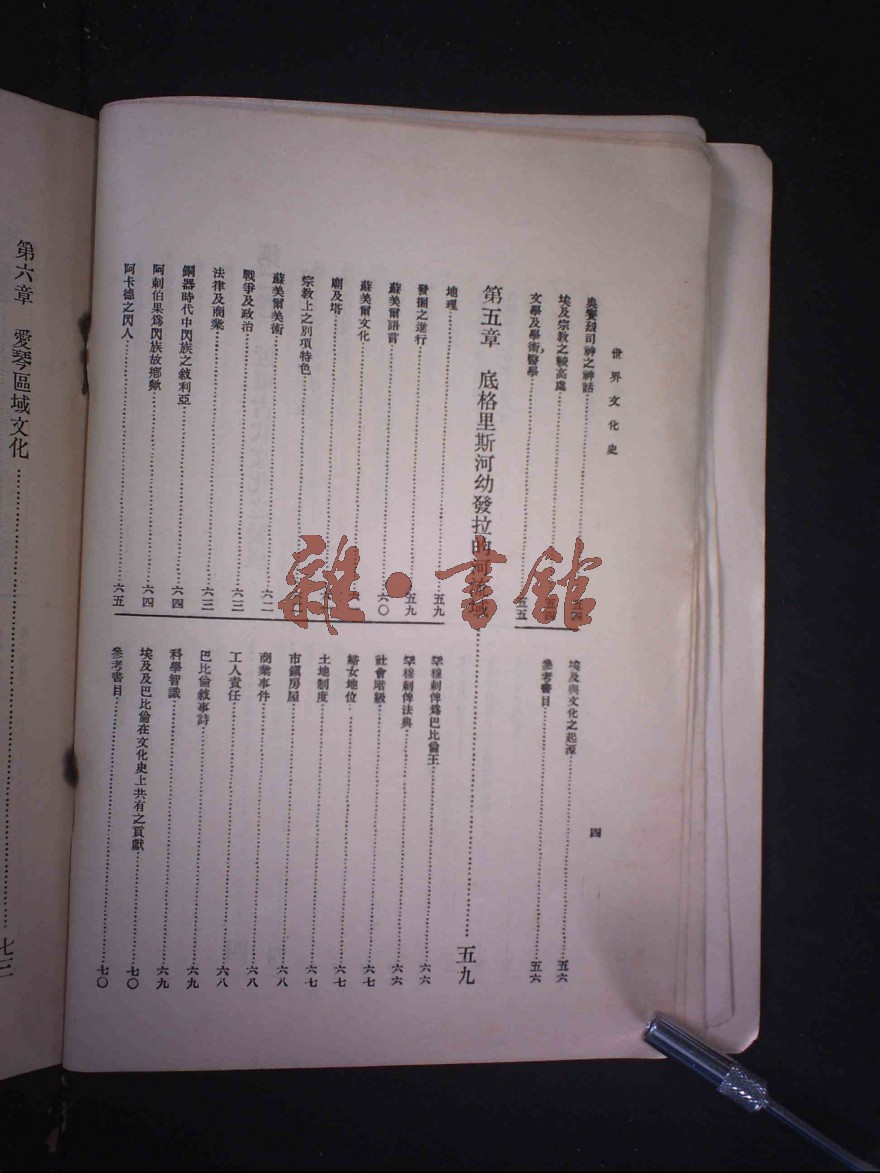 世界文化史
四
奧賽烈司神之神話……五四
埃及宗教之較高處……五四
文學及學術，醫學……五五
埃及與文化之起源……五六
參考書目……五六
第五章　底格里斯河幼發拉的河流域……五九
地理……五九
發掘之進行……五九
蘇美爾語言……六〇
蘇美爾文化……
廟及塔……
宗教上之別項特色……
蘇美爾美術……六二
戰爭及政治……六三
法律及商業……六三
銅器時代中閃族之敘利亞……六四
阿剌伯果爲閃族故鄉歟……六四
阿卡德之閃人……六五
罕穆剌俾爲巴比倫王……六六
罕穆剌俾法典……六六
社會階級……六七
婦女地位……六七
土地制度……六七
市鎮房屋……六八
商業事件……六八
工人責任……六八
巴比倫敘事詩……六九
科學智識……六九
埃及及巴比倫在文化史上共有之貢獻……七〇
參考書目……七〇
第六章　愛琴區域文化……七三
雜·書館